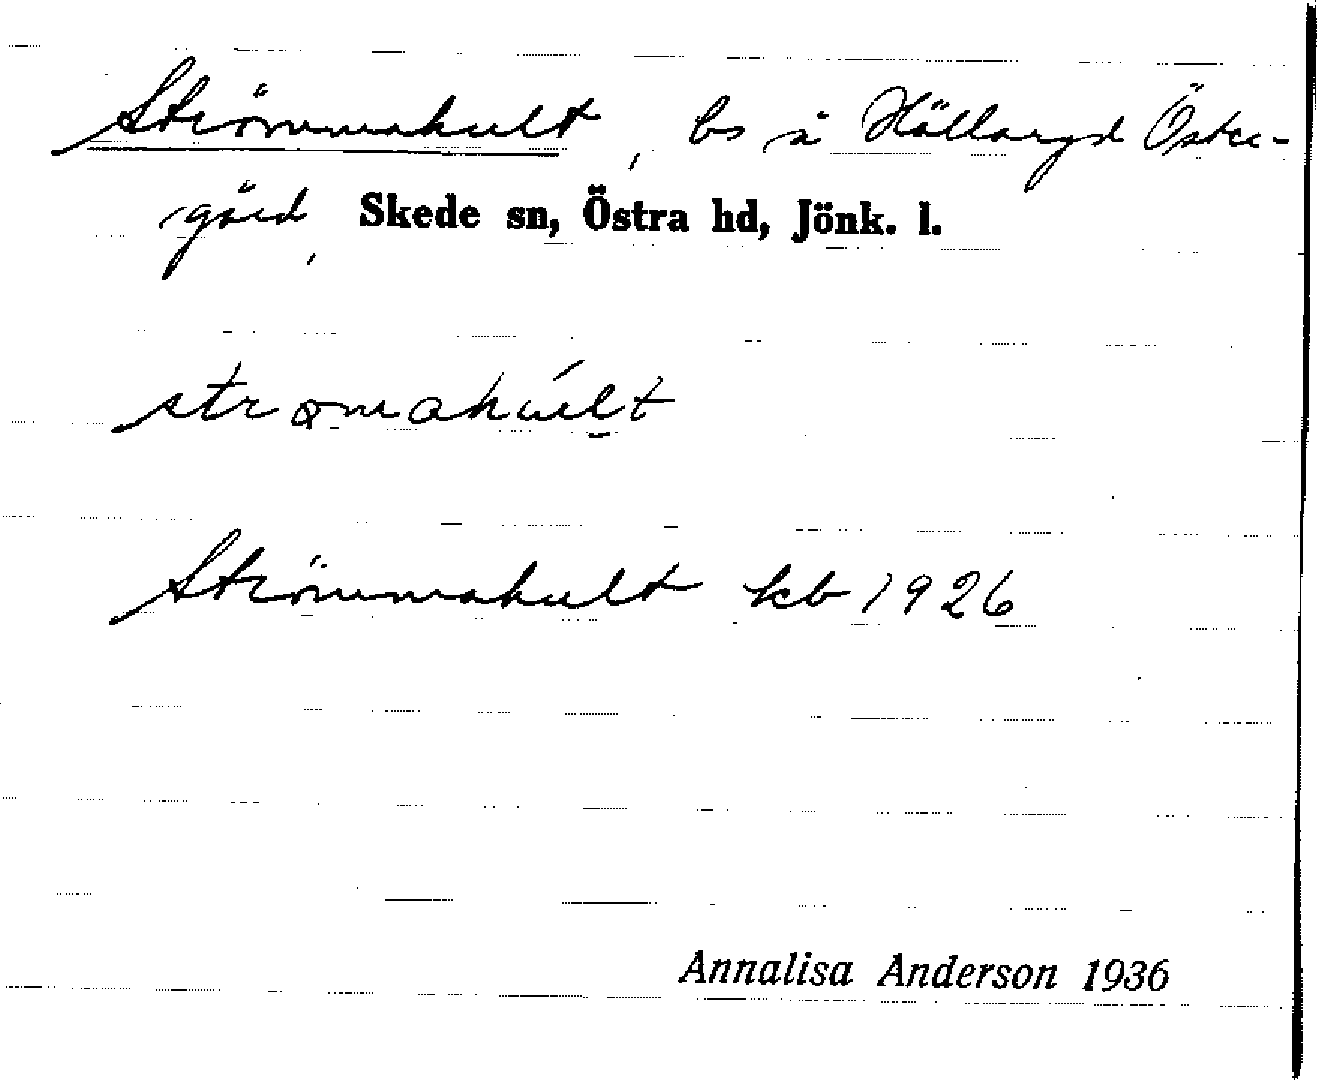 Strömmahult, bs å Hällaryd Öster-
gård, Skede sn, Östra hd, Jönk. l.
strømahúlt
Strömmahult kb 1926
Annalisa Anderson 1936